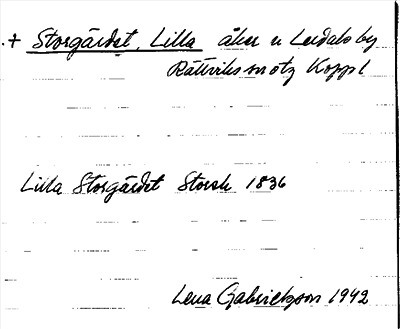 + Storgärdet, Lilla åker u Lerdals by
Rättviks sn otg Koppl
Lilla Storgärdet Storsk 1836
Lena Gabrielsson 1942